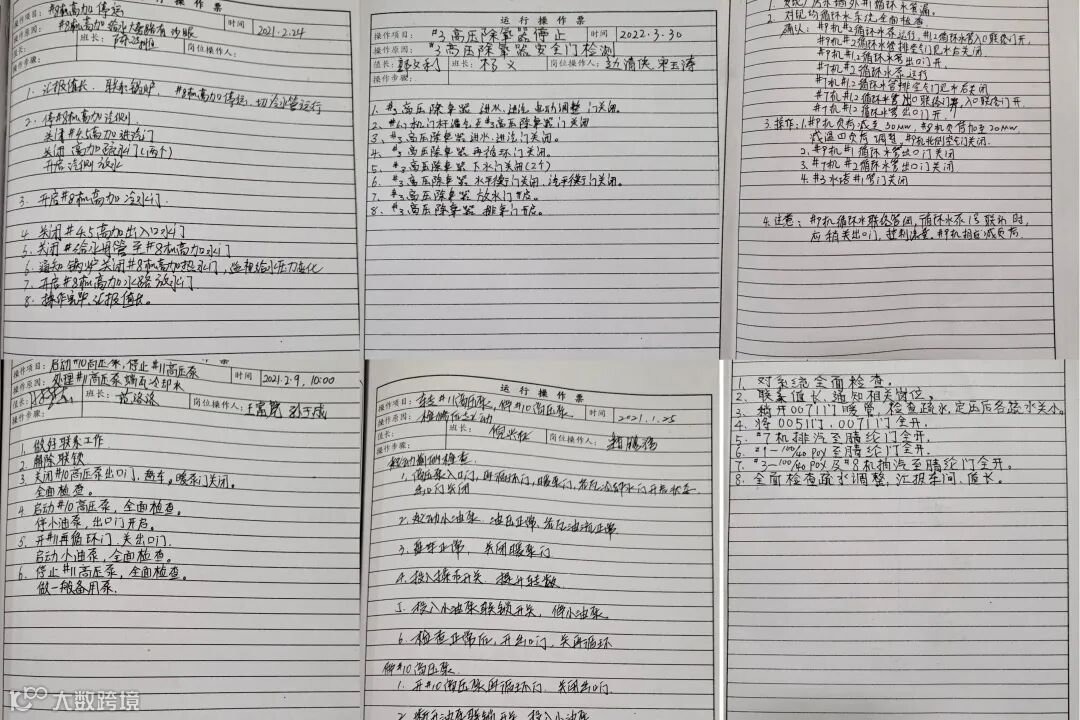 运行操作票
操作项目: #8机高加停运
操作原因: #8机高加给水大旁路有沙眼
时间 2021.2.24
值长:
班长:
岗位操作人:
操作步骤:
1. 汇报值长、联系锅炉,#8机高加停运,切冷水管运行
2. 停#8机高加汽侧
关闭#4.5高加进汽门
关闭高加疏水门(两个)
开启汽侧放水
3. 开启#8机高加冷水门.
4 关闭#4.5高加出入口水门
5. 关闭#给水母管至#8机高加水门
6. 通知锅炉关闭#8机高加热水门,监视给水压力变化
7. 开启#8机高加水路放水门
8. 操作完毕,汇报值长。
运行操作票
操作项目: #3高压除氧器停止
时间 2022.3.30
操作原因: #3高压除氧器安全门检测
值长:
班长: 杨义
岗位操作人:
操作步骤:
1、#3高压除氧器 进水、进汽 电动调整门关闭。
2、机门杆漏气至#3高压除氧器门关闭
3、#3高压除氧器 进水、进汽门关闭。
4、#3高压除氧器 再循环门关闭。
5、#3高压除氧器 下水门关闭(2个)
6、#3高压除氧器 水平衡门关闭、汽平衡门关闭。
7、#3高压除氧器 放水门开启。
8、#3高压除氧器 排氧门开启。
2. 对现场循环水系统全面检查.
确认: #9机#2循环水泵运行,#1.#2循环水管入口联络门开.
#9机#2循环水管排空气门见水后关闭
#9机#1循环水管出口门开.
#7机#2循环水泵运行
#7机#1循环水管排空气门见水后关闭
#7机#1.#2循环水管出口联络门开,入口联络门开.
#7机#1.#2循环水管出口门开.
3. 操作:1.#9机负荷减至30MW,#8机负荷加至20MW,
减温 负荷调整,
2. #9机#1循环水管出口门关闭
3. #7机#2循环水管出口门关闭
4. #3水塔#1管门关闭
4. 注意: #9机循环水联络管阀,循环水泵 联动时,
应稍关出口门,控制流量.#9机相应减负荷.
操作项目: 启动#10高压泵,停止#11高压泵
操作原因: 处理#11高压泵端瓦冷却水
时间 2021.2.9, 10:00
值长:
班长:
岗位操作人:
操作步骤:
1、做好联系工作
2、解除联锁
3、关闭#10高压泵出口门,热车。暖泵门关闭。
全面检查。
4、启动#10高压泵,全面检查。
停小油泵,出口门开启。
5、开#11再循环门,关出口门.
启动小油泵,全面检查。
6、停止#11高压泵,全面检查。
做一般备用泵.
运行操作票
操作项目: #11高压泵,停#10高压泵.
操作原因:
时间 2021.1.25
值长:
班长:
岗位操作人:
操作步骤:
起动前的检查.
1. 高压泵入口门,再循环门,暖泵门,各瓦冷却水门开启状态.
出口门关闭
2. 起动小油泵.油压正常.各瓦油流正常.
3. 盘车正常,关闭暖泵门
4. 投入操作开关 提升转数
5. 投入小油泵联锁开关,停小油泵.
6. 检查正常后,开出口门,关再循环
停#10高压泵.
1. 开#10高压泵再循环门 关闭出口门.
2. 断开油泵联锁开关,投入小油泵.
1. 对系统全面检查.
2. 联系值长、通知相关岗位。
3. 稍开0071门暖管,检查疏水,定压后各疏水关小.
4. 将0051门、0071门全开.
5. #7机排汽至腈纶门全开.
6. #1-100/40 POX至腈纶门全开.
7. #3-100/40 POX及#8机抽汽至腈纶门全开。
8. 全面检查疏水调整,汇报车间、值长。
大数跨境